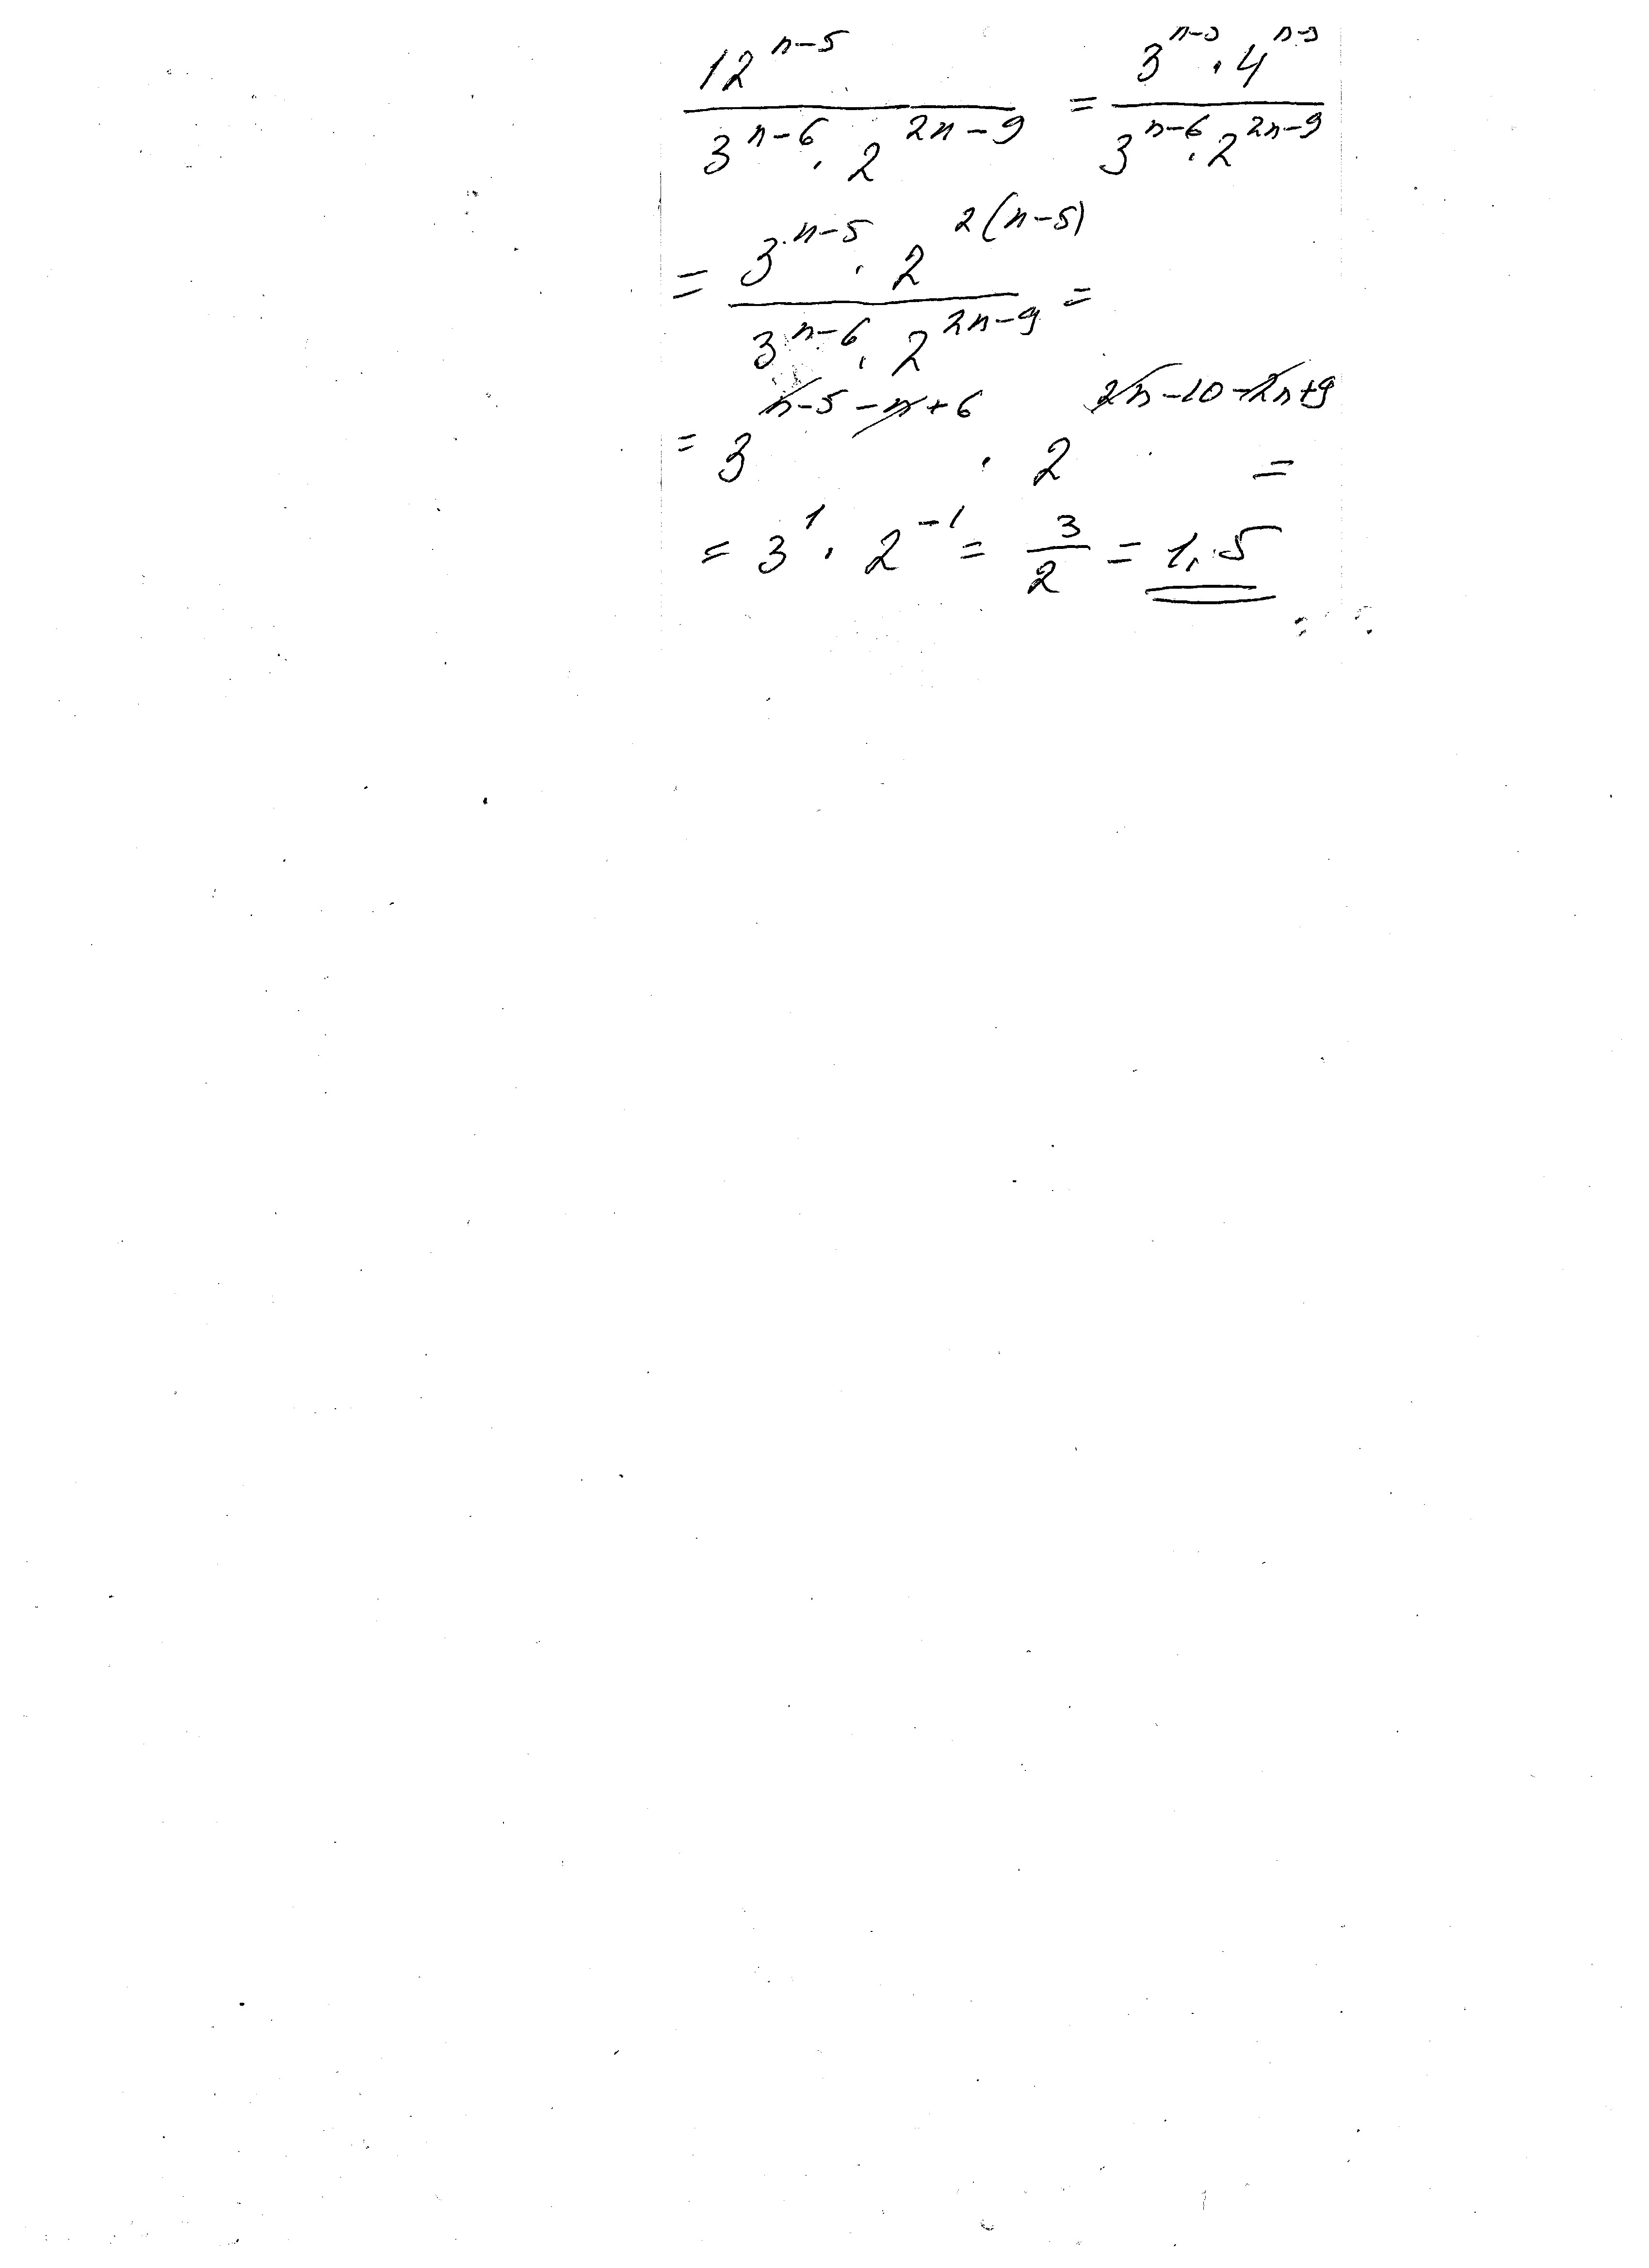 12^{n-5} / (3^{n-6} · 2^{2n-9}) = (3^{n-5} · 4^{n-5}) / (3^{n-6} · 2^{2n-9})
= (3^{n-5} · 2^{2(n-5)}) / (3^{n-6} · 2^{2n-9}) =
= 3^{n-5-n+6} · 2^{2n-10-2n+9} =
= 3^1 · 2^{-1} = 3/2 = 1,5